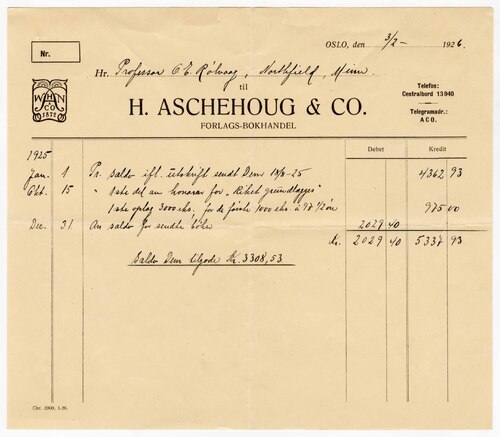 Nr.
OSLO, den 3/2- 1926.
Hr. Professor O E. Rölvaag, Northfield, Minn.
til
H. ASCHEHOUG & CO.
FORLAGS-BOKHANDEL
WHN
& CO
1872
Telefon:
Centralbord 13940
Telegramadr.:
ACO.
Debet Kredit
1925
Jan. 1 Pr. saldo ifl. utskrift sendt Dem 18/8-25 4362 93
Okt. 15 " 1ste del av honorar for "Riket grundlægges"
1ste oplag 3000 eks. for de første 1000 eks. à 97 1/2 øre 975 00
Dec. 31 An saldo for sendte bøker 2029 40
Kr. 2029 40 5337 93
Saldo Dem tilgode Kr. 3308,53
Chr. 2000. 1-26.